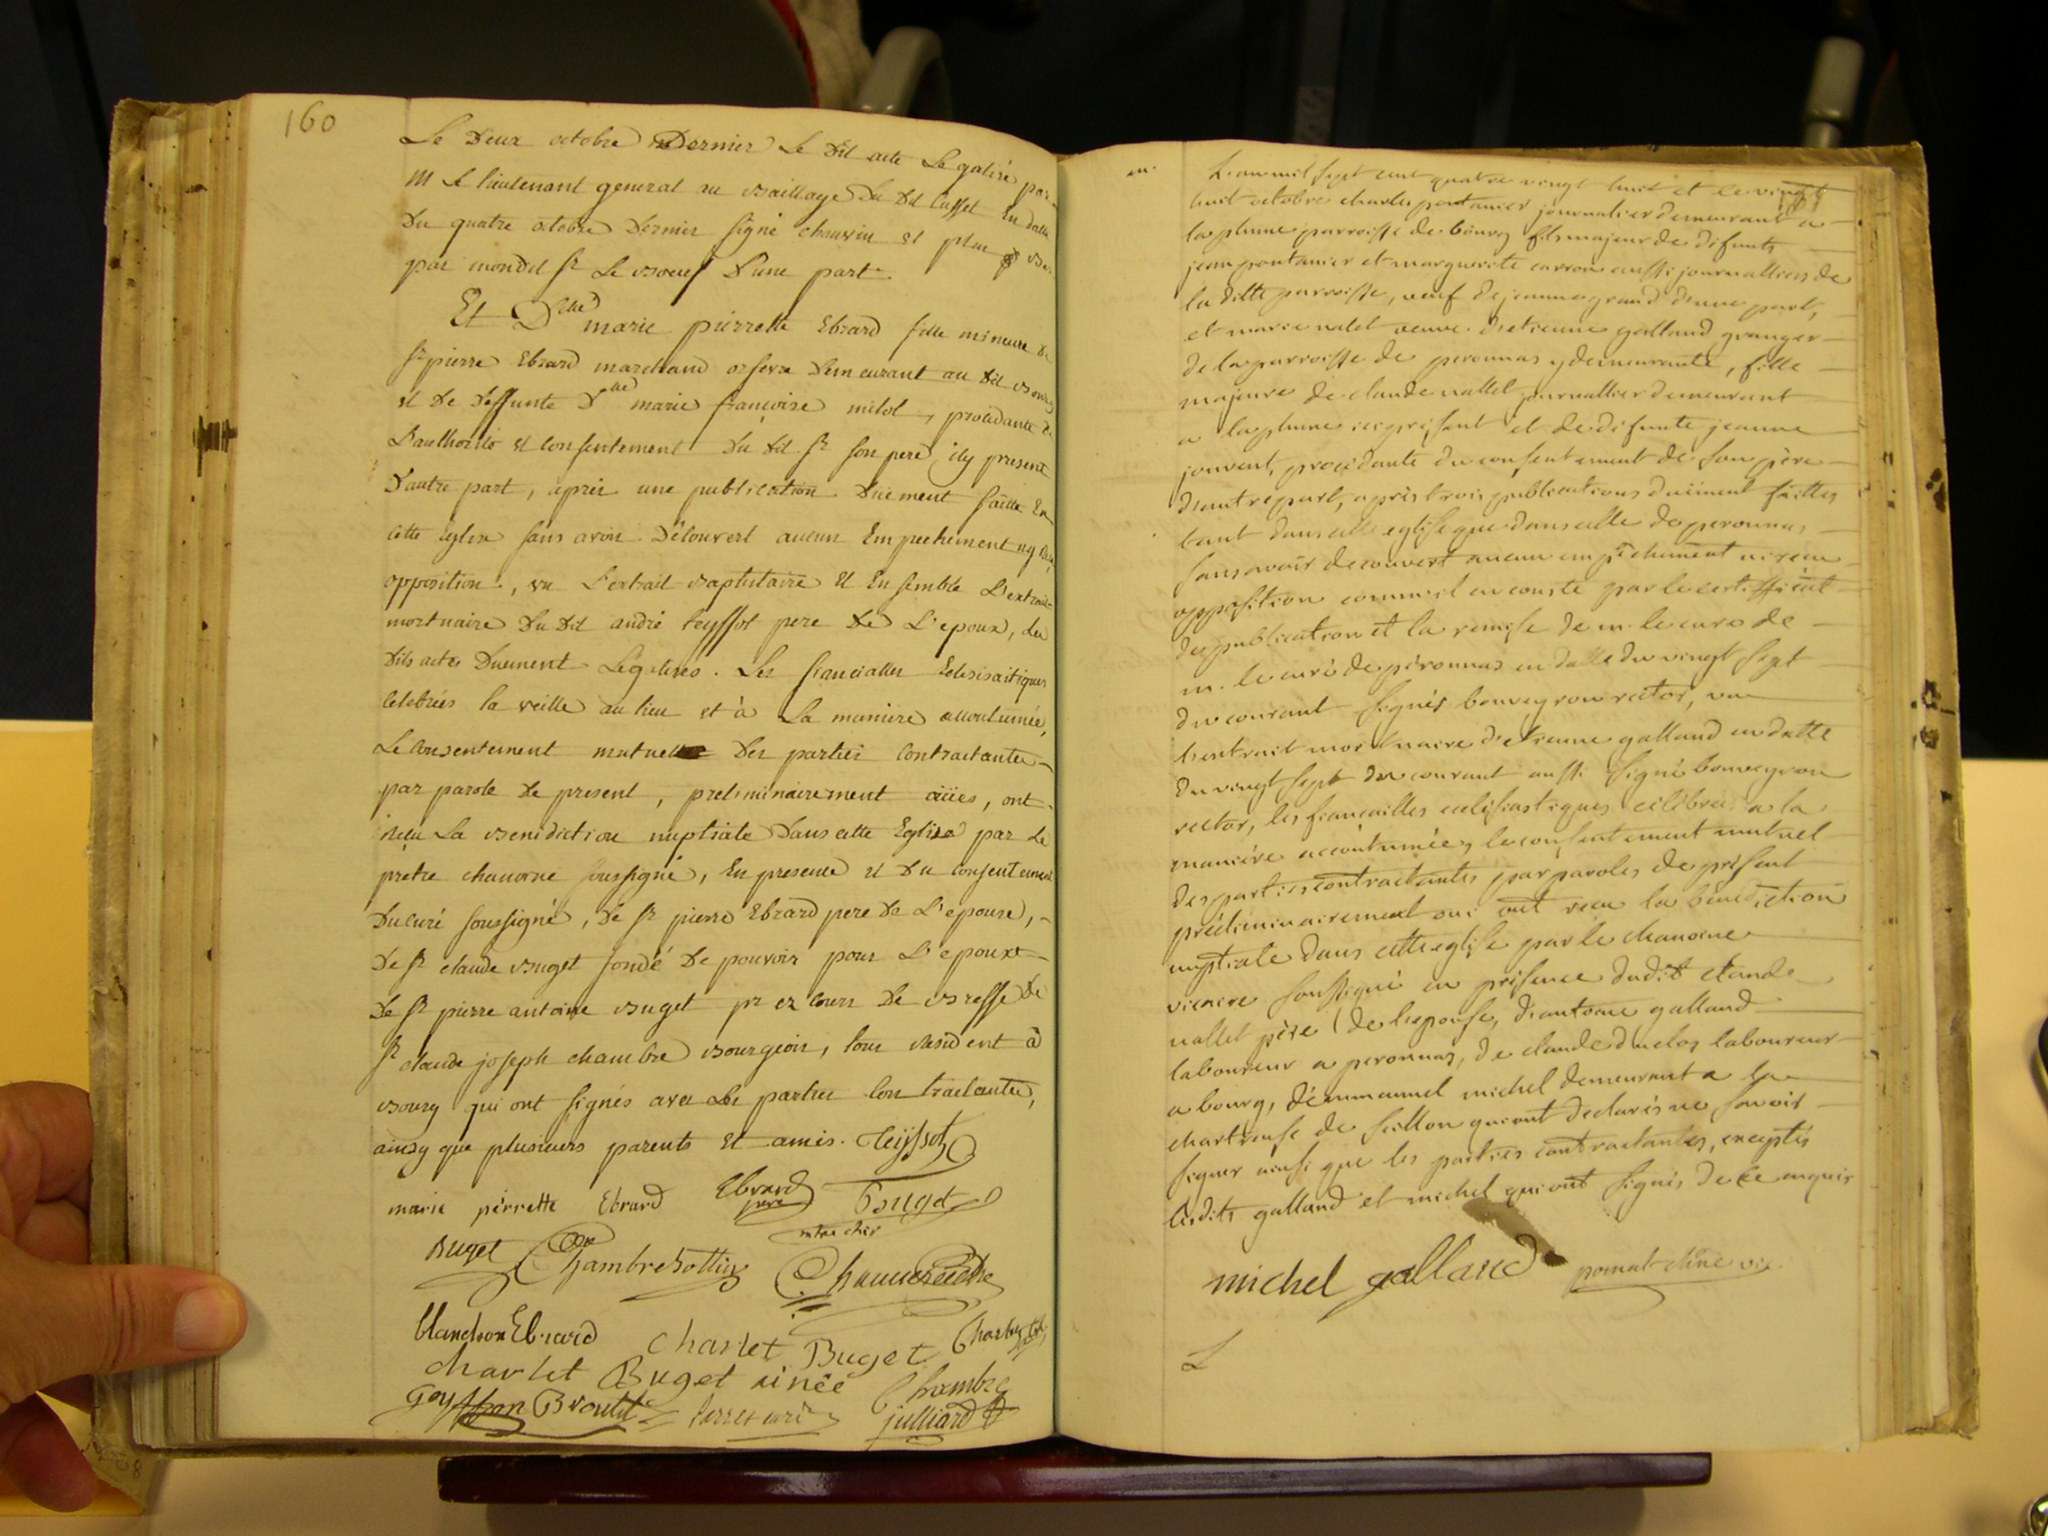 160
Le Deux octobre Dernier Le Dit acte Legalisé par
M Le lieutenant general au Bailliage Du Dit Cusset En datte
Du quatre octobre Dernier signé chauvin et plus
par mondit Sr Le Boeuf D'une part
Et Dlle marie pierrette Ebrard fille mineure de
Sr pierre Ebrard marchand orfevre Demeurant au Dit Bourg
et De Deffunte Dlle marie françoise milot, procedante de
L'authorité et consentement Du Dit Sr son pere, icy present
D'autre part, après une publication Duement faitte En
cette Eglise sans avoir Découvert aucun Empechement ny
opposition, vu L'extrait Baptistaire Et Ensemble L'extrait
mortuaire Du Dit andré teyssot pere De L'epoux, les
Dits actes Duement Légalisés. Les fiancialles Eclesisastiques
Celebrées la veille au lieu et à La manière accoutumée,
Le Consentement mutuel Des parties Contractantes
par parole De present, preliminairement oüies, ont
recu La Benidiction nuptiale Dans cette Eglise par Le
pretre chanoine soussigné, En presence et Du Consentement
Du curé soussigné, De Sr pierre Ebrard pere De L'epouse,
De Sr claude Buget fondé De pouvoir pour L'epoux
De Sr pierre antoine Buget De Bresse De
Sr claude joseph chambre Bourgeois, tous resident à
Bourg qui ont signés avec Les parties Contractantes,
ainsy que plusieurs parents Et amis. Teyssot
marie pérrette Ebrard Ebrard pere Buget
Buget
Ebrard Charlet Buget
Charlet Buget ainée Chambre
Broutet julliard
L'an mil sept cent quatre vingt huit et le vingt
huit octobre charles pontanier journalier demeurant a
la plume parroisse de bourg fils majeur de difunts
jean pontanier et marguerite carron aussi journalliers de
la ditte parroisse, veuf de jeanne grand d'une part,
et marie nalet veuve d'etienne galland granger
de la parroisse de peronnas y demeurante, fille
majeure de claude nallet journallier demeurant
a la plume icy présent et de difunte jeanne
jouvent, procédante du consentement de son père
d'autre part, après trois publications duëment faittes
tant dans cette eglise que dans celle de peronnas
sans avoir decouvert aucun empêchement ni
opposition comme il en conste par le certifficat
de publication et la remise de m. le curé de
m. le curé de péronnas en datte du vingt sept
du courant signés bouveyron rector, vu
l'extrait mortuaire d'etienne galland en datte
du vingt sept du courant aussi signé bouveyron
rector, les fiancailles eclésiastiques célébrées a la
manière accoutumée, le consentement mutuel
des parties contractantes par paroles de présent
préliminairement oui ont recu la bénédiction
nuptiale dans cette eglise par le chanoine
vicaire soussigné en présence dudit claude
nallet père de l'epouse, d'antoine galland
laboureur a peronnas, de claude duclos laboureur
a bourg, d'emmanuel michel demeurant a la
chartreuse de seillon qui ont declarés ne savoir
signer ainsi que les parties contractantes, exceptés
lesdits galland et michel qui ont signés de ce enquis
michel galland